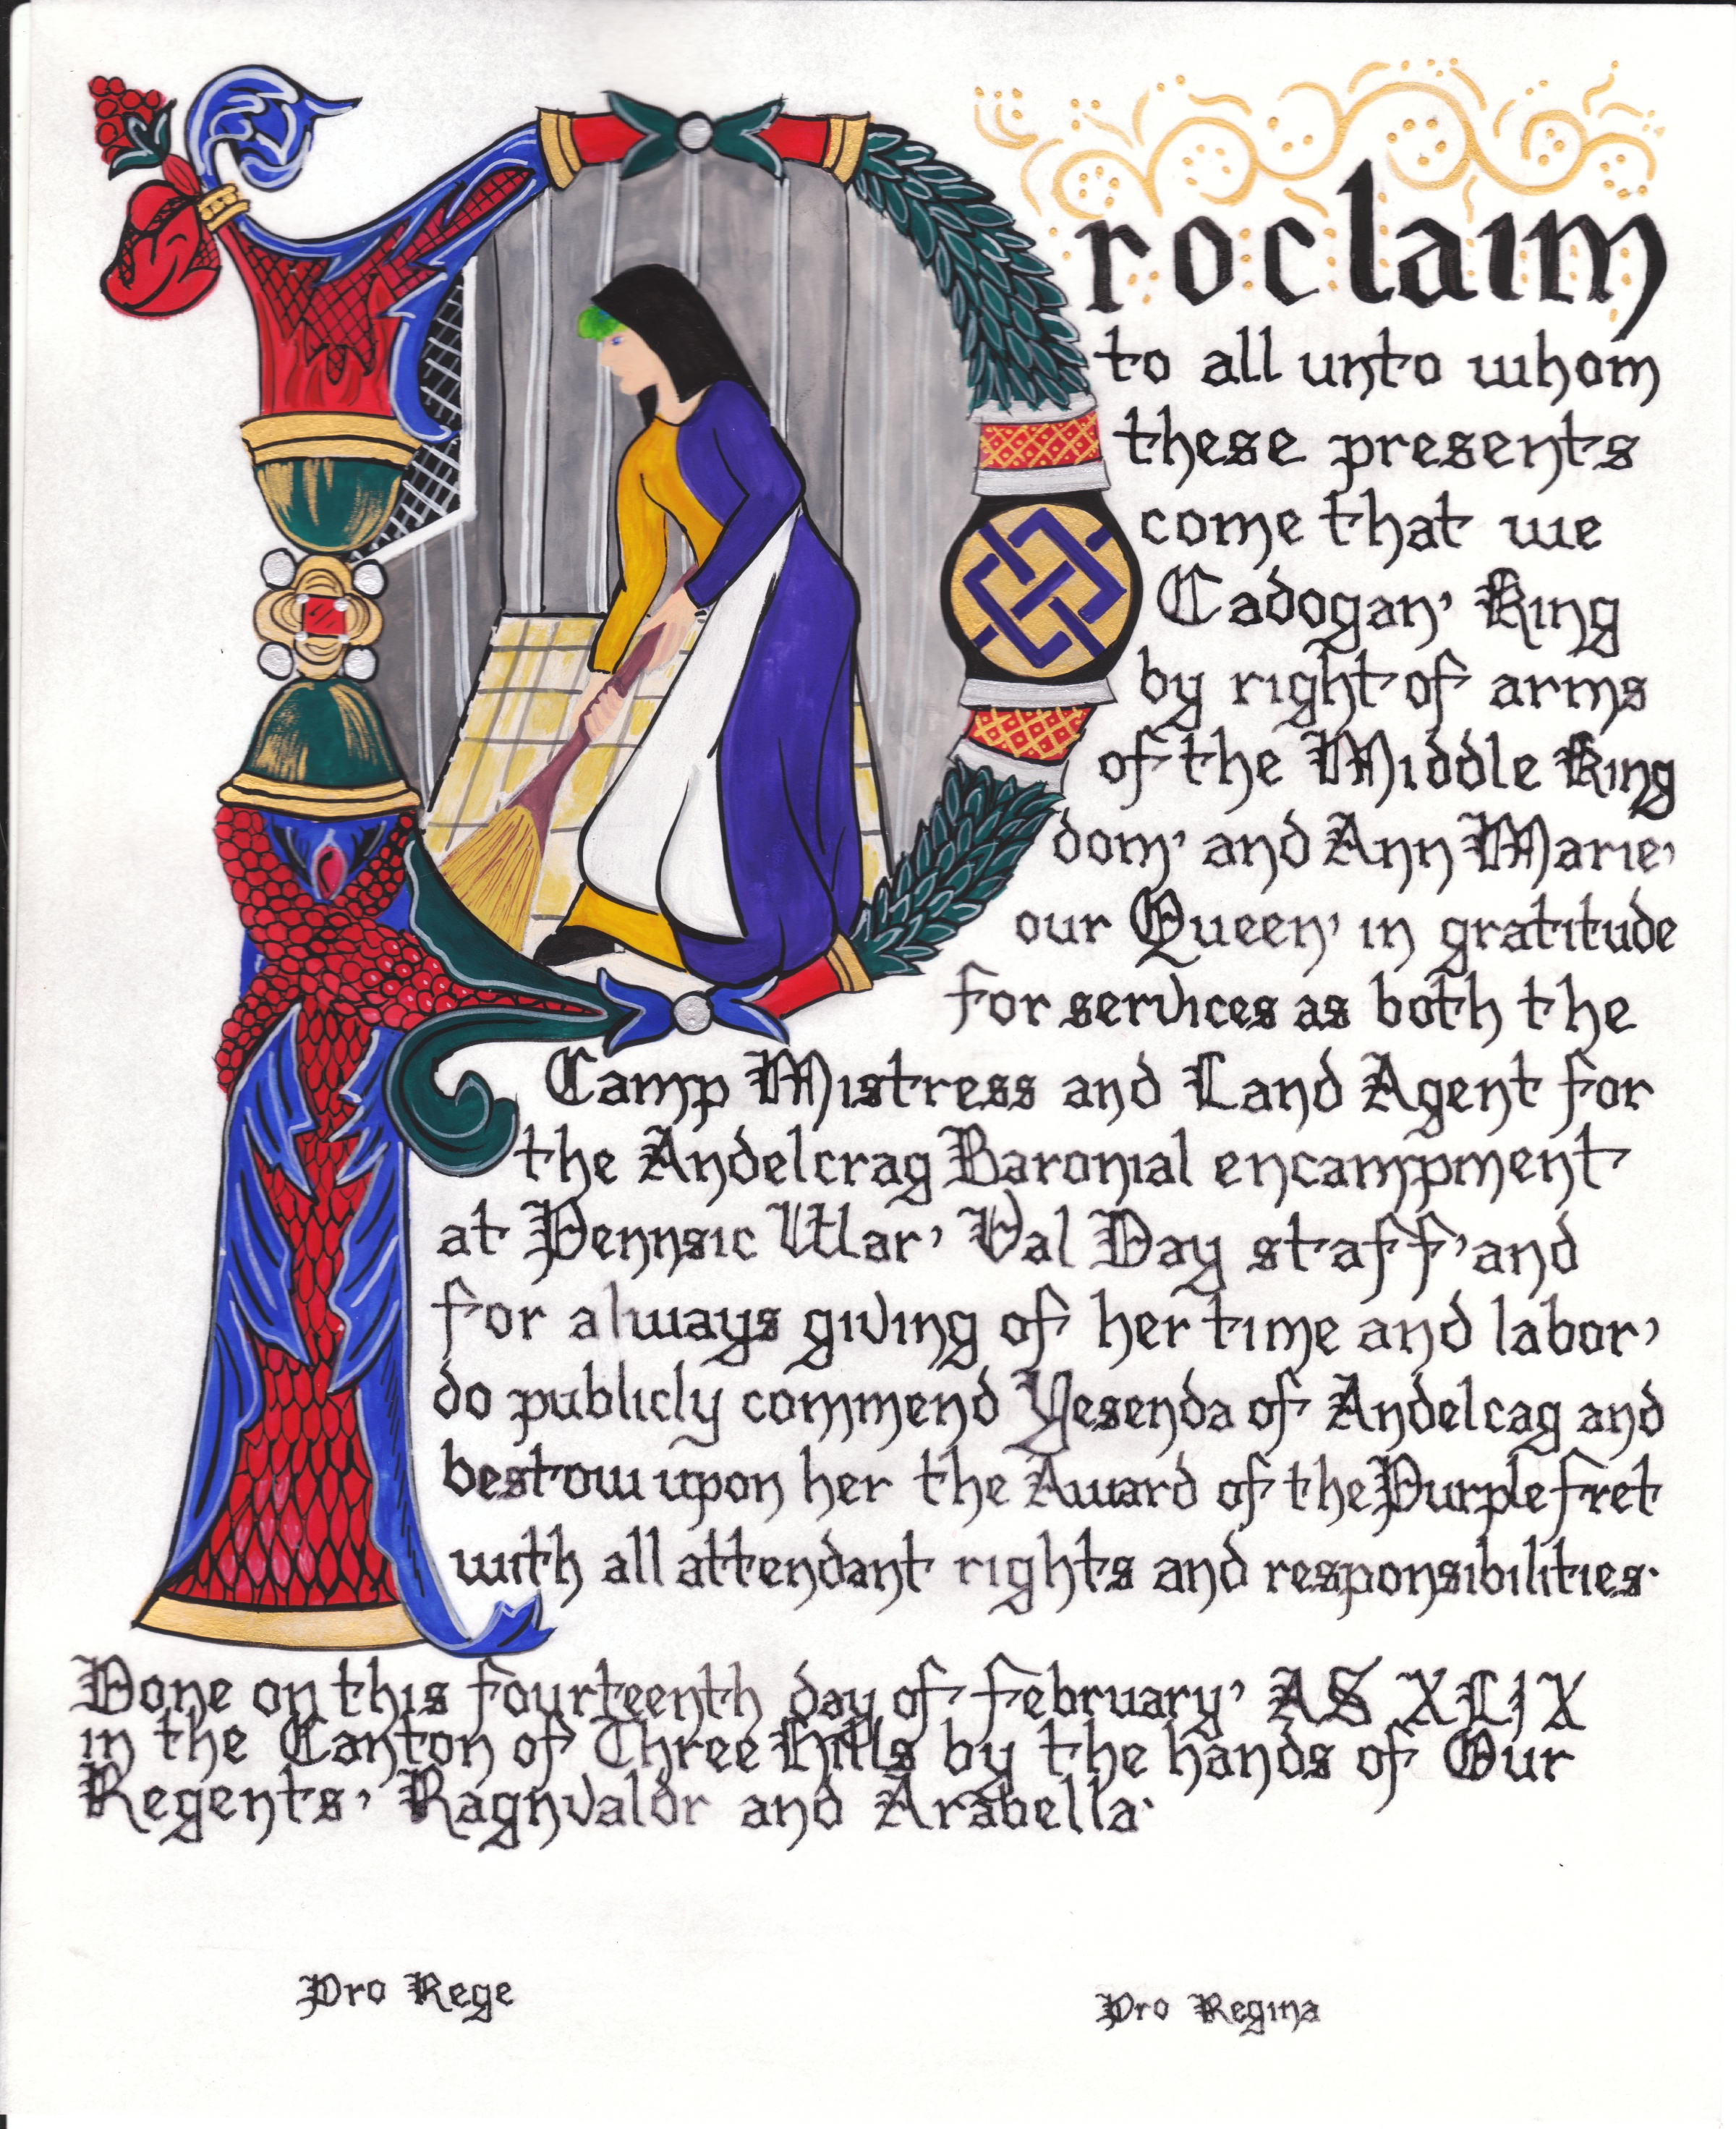 Proclaim
to all unto whom
these presents
come that we
Cadogan, King
by right of arms
of the Middle King
dom, and Ann Marie,
our Queen, in gratitude
for services as both the
Camp Mistress and Land Agent for
the Andelcrag Baronial encampment
at Pennsic War, Val Day staff, and
for always giving of her time and labor,
do publicly commend Yesenda of Andelcag and
bestow upon her the Award of the Purple fret
with all attendant rights and responsibilities.
Done on this fourteenth day of february, AS XLIX
in the Canton of Three Hills by the hands of Our
Regents, Ragnvaldr and Arabella.
Pro Rege
Pro Regina